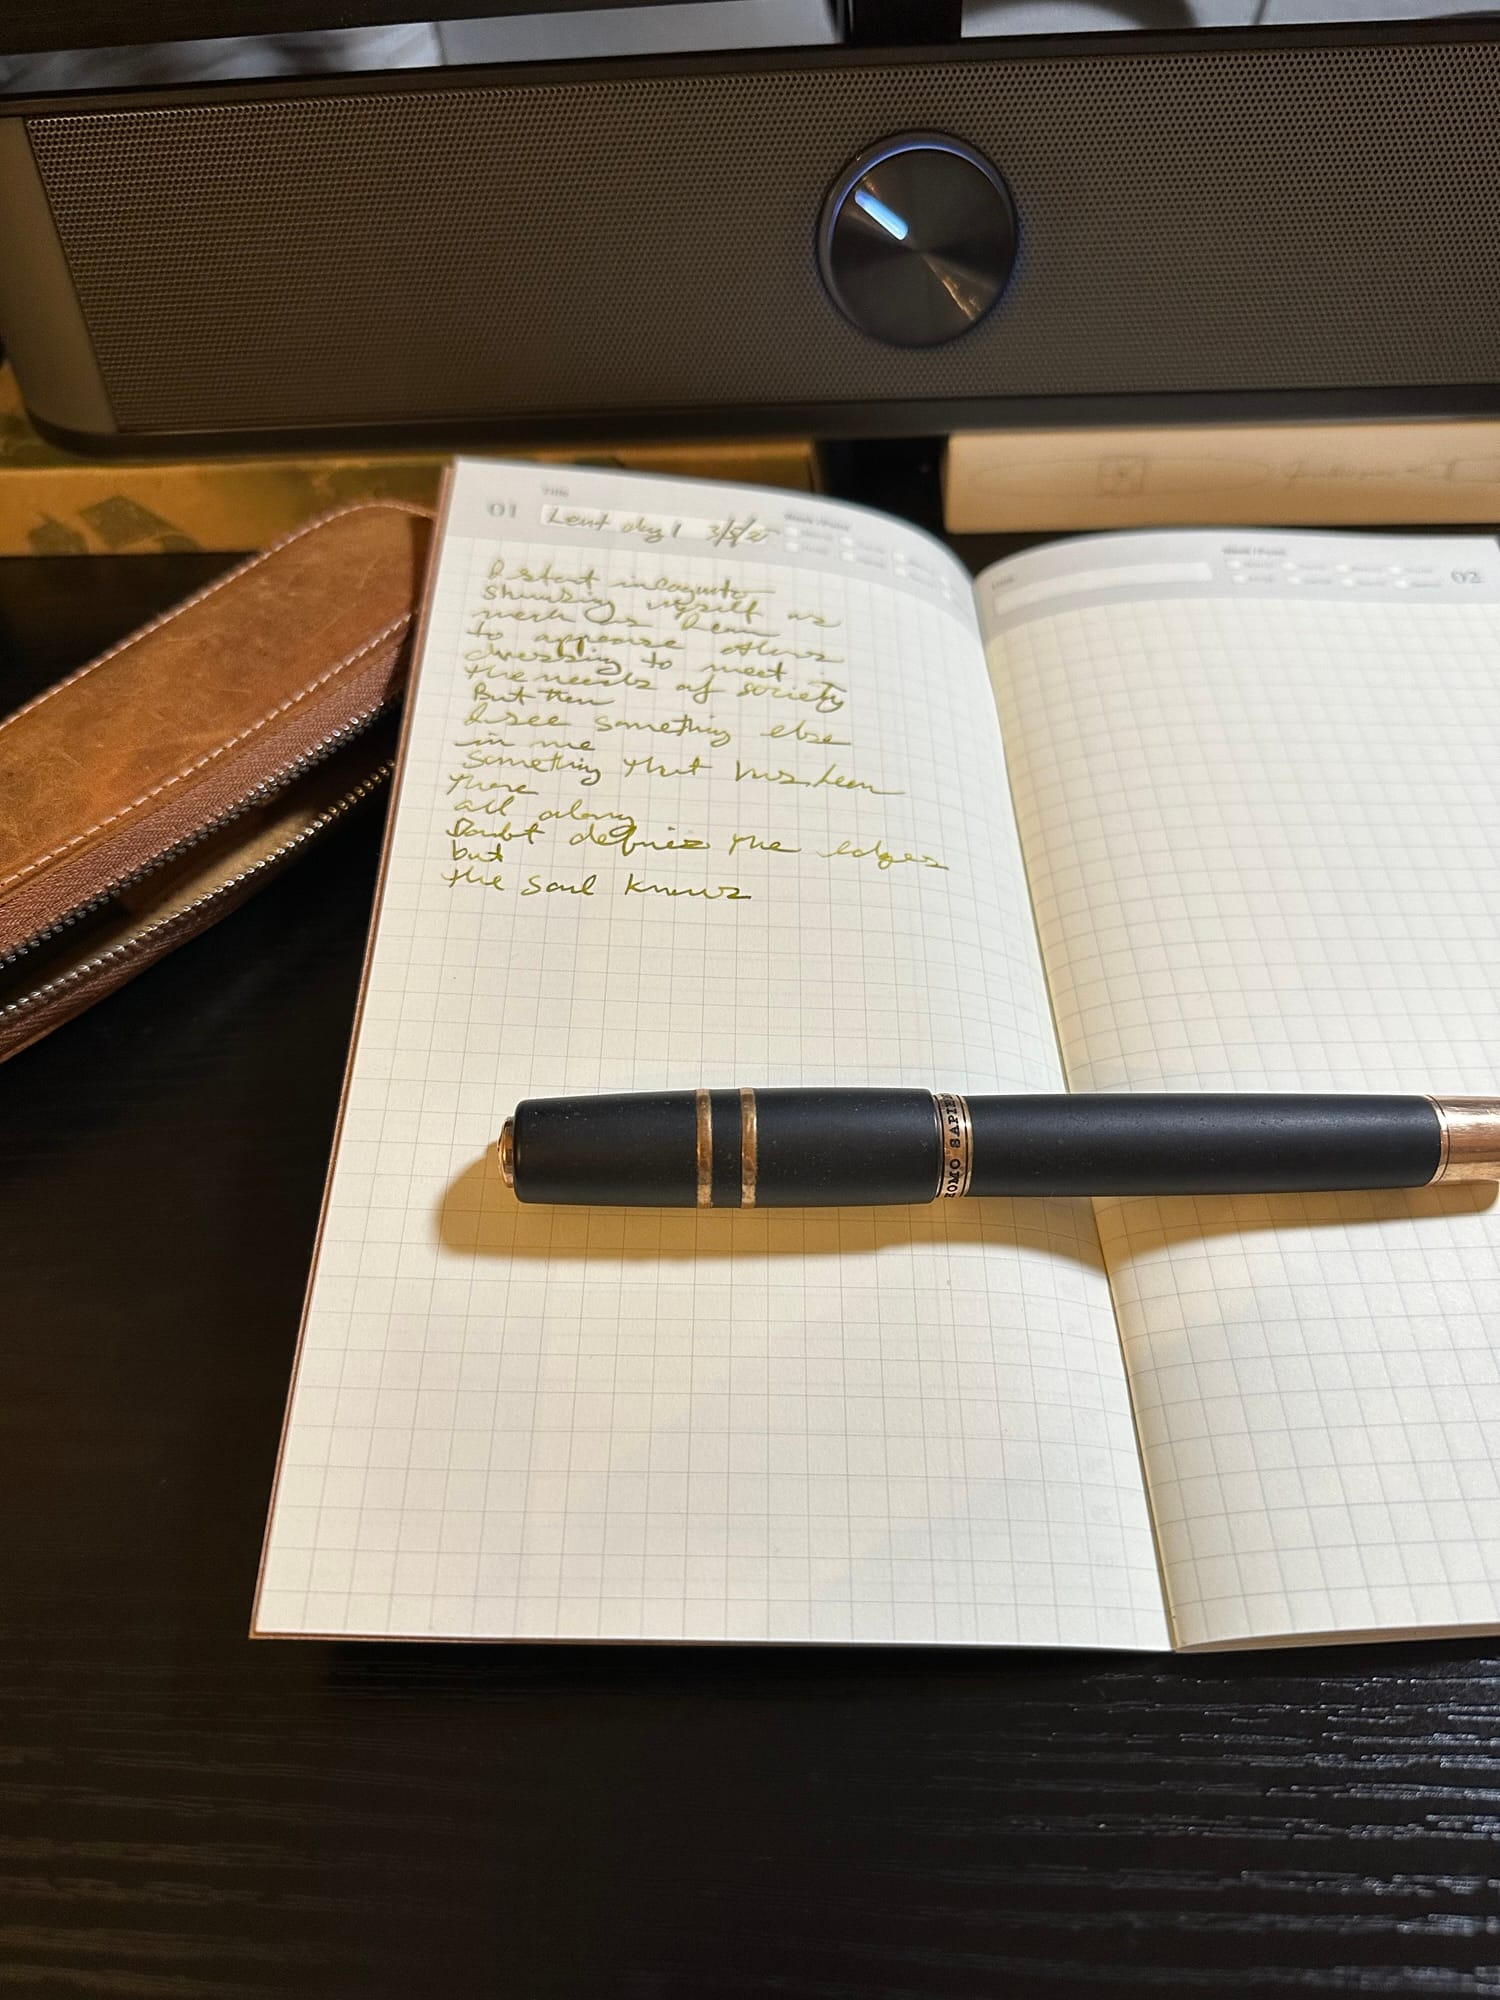 Title
01 Lent day 1 3/5/25
I start incognito
showing myself as
much as I can
to appease others
dressing to meet
the needs of society
But then
I see something else
in me
something that has been
there
all along
Doubt defines the edges
but
the soul knows
02
HOMO SAPIE